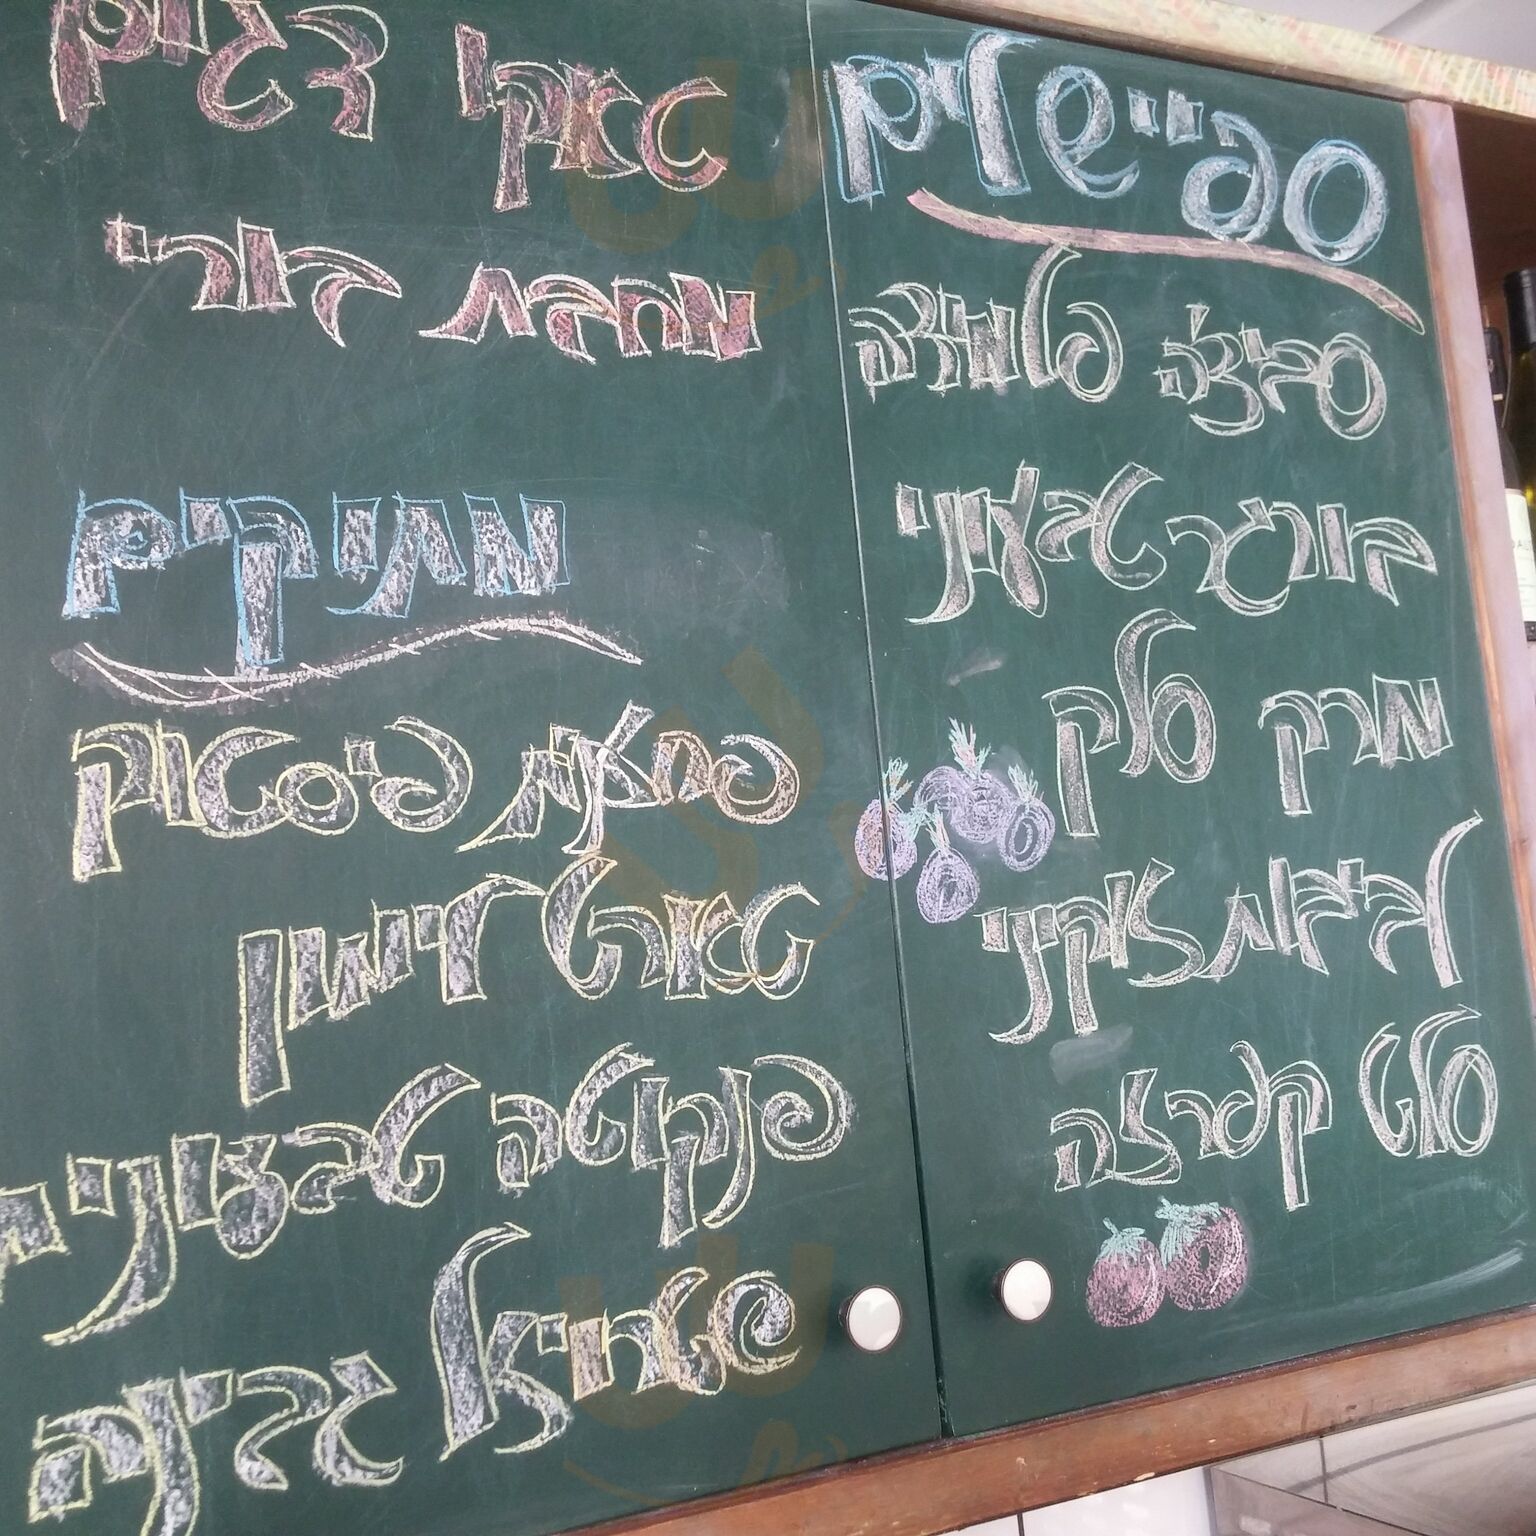 ספיישלים
סביצ'ה פלמידה
בורגר טבעוני
מרק סלק
לביבות זוקיני
סלט קפרזה
טאקו דגים
מחבת בורי
מתוקים
פחזנית פיסטוק
טארט לימון
פנקוטה טבעונית
שטרודל גבינה